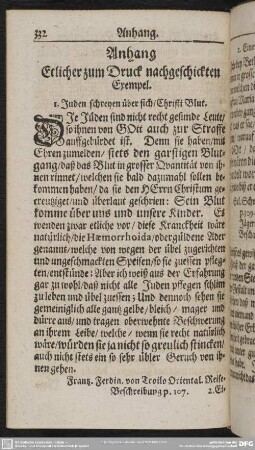 332 Anhang.
Anhang
Etlicher zum Druck nachgeschickten
Exempel.
1. Juden schreyen über sich/Christi Blut.
DIe Jüden sind nicht recht gesunde Leute/
so ihnen von GOtt auch zur Straffe
auffgebürdet ist. Denn sie haben/mit
Ehren zumelden/ stets den garstigen Blut-
gang/daß das Blut in grosser Quantität von ih-
nen rinnet/welchen sie bald dazumahl sollen be-
kommen haben/da sie den HErrn Christum ge-
creutziget/und überlaut geschrien: Sein Blut
komme über uns und unsere Kinder. Es
wenden zwar etliche vor/ diese Kranckheit wäre
natürlich/die Hæmorrhoida/oder güldene Ader
genannt/welche von wegen der übel zugerichten
und ungeschmackten Speisen/so sie zuessen pfleg-
ten/entstünde: Aber ich weiß aus der Erfahrung
gar zu wohl/daß nicht alle Juden pflegen schlim
zu leben und übel zuessen; Und dennoch sehen sie
gemeiniglich alle gantz gelbe/bleich/ mager und
dürre aus/und tragen oberwehnte Beschwerung
an ihrem Leibe/ welche/ wenn sie recht natürlich
wäre/würden sie ja nicht so greulich stincken/
auch nicht stets ein so sehr übler Geruch von ih-
nen gehen.
Frantz. Ferdin. von Troilo Oriental. Reise-
Beschreibung p. 107.
2. Ei-